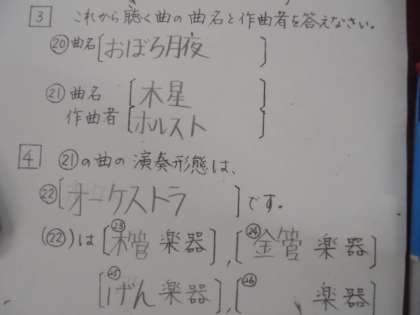 3 これから聴く曲の曲名と作曲者を答えなさい。
⑳曲名[おぼろ月夜]
㉑曲名[木星]
作曲者[ホルスト]
4 ㉑の曲の演奏形態は、
㉒[オーケストラ]です。
(㉒)は[㉓木管楽器],[㉔金管楽器]
[㉕げん楽器],[㉖ 楽器]